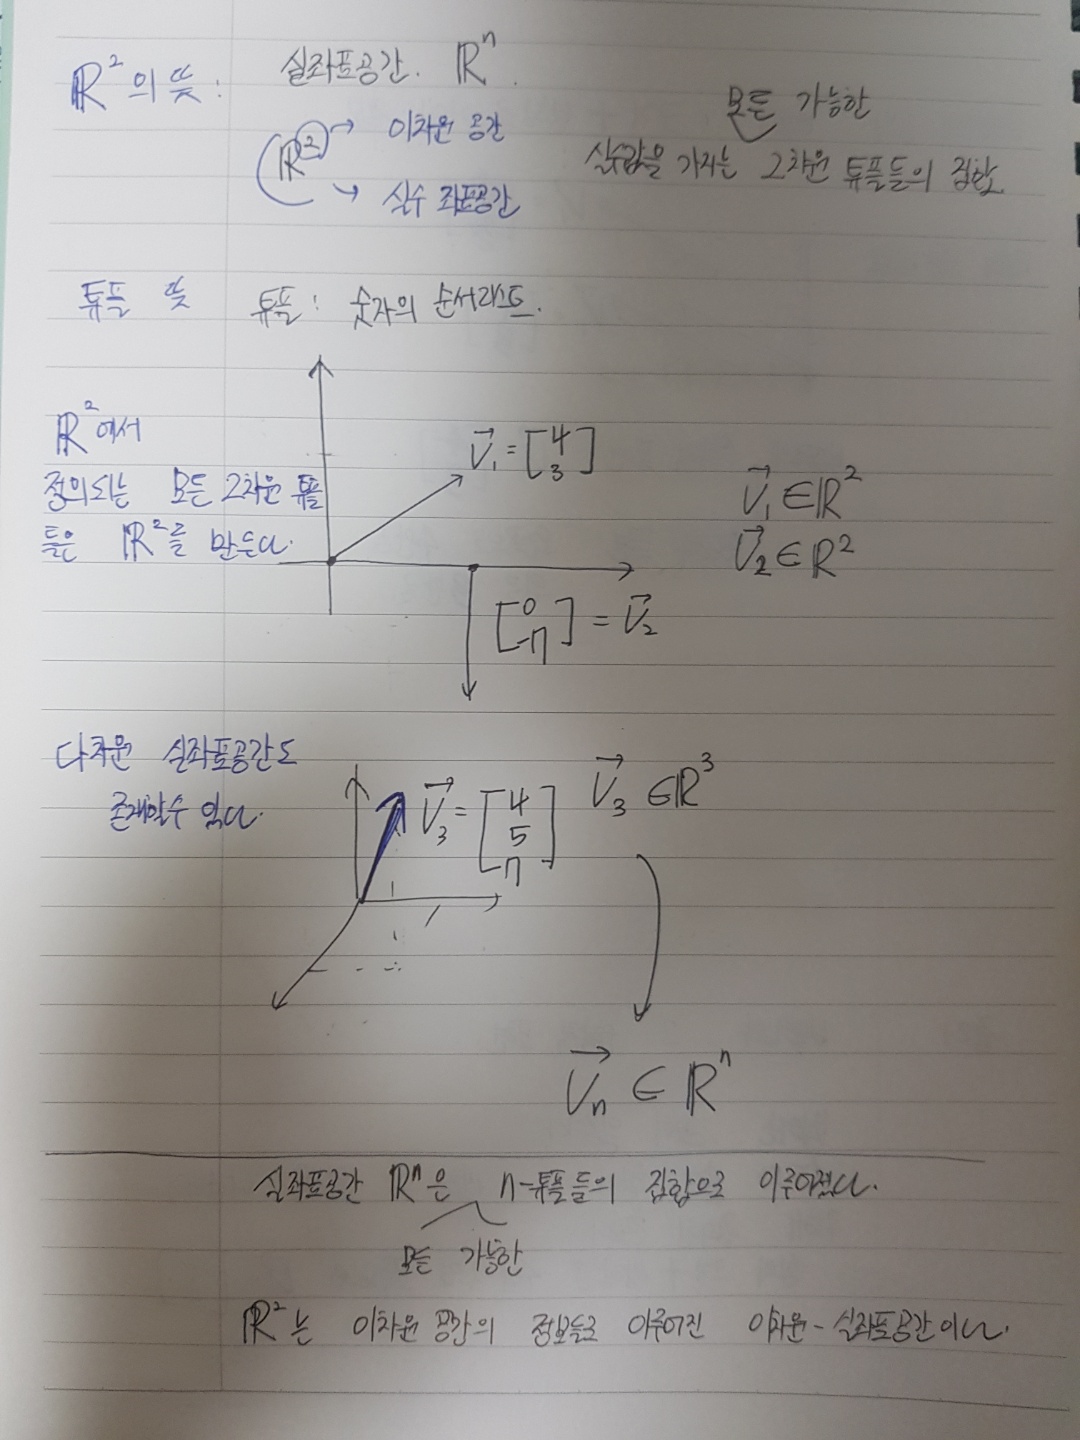 ℝ²의 뜻 :
실좌표공간. ℝⁿ.
ℝ² → 이차원 공간
→ 실수 좌표공간
모든 가능한
실수값을 가지는 2차원 튜플들의 집합
튜플 뜻
튜플 : 숫자의 순서리스트.
ℝ²에서
정의되는 모든 2차원 튜플
들은 ℝ²를 만든다.
V⃗₁ = [4
3]
V⃗₁ ∈ ℝ²
V⃗₂ ∈ ℝ²
[0
-7] = V⃗₂
다차원 실좌표공간도
존재할수 있다.
V⃗₃ = [4
5
-7]
V⃗₃ ∈ ℝ³
V⃗ₙ ∈ ℝⁿ
실좌표공간 ℝⁿ은 n-튜플들의 집합으로 이루어졌다.
모든 가능한
ℝ²는 이차원 공간의 정보들로 이루어진 이차원-실좌표공간이다.